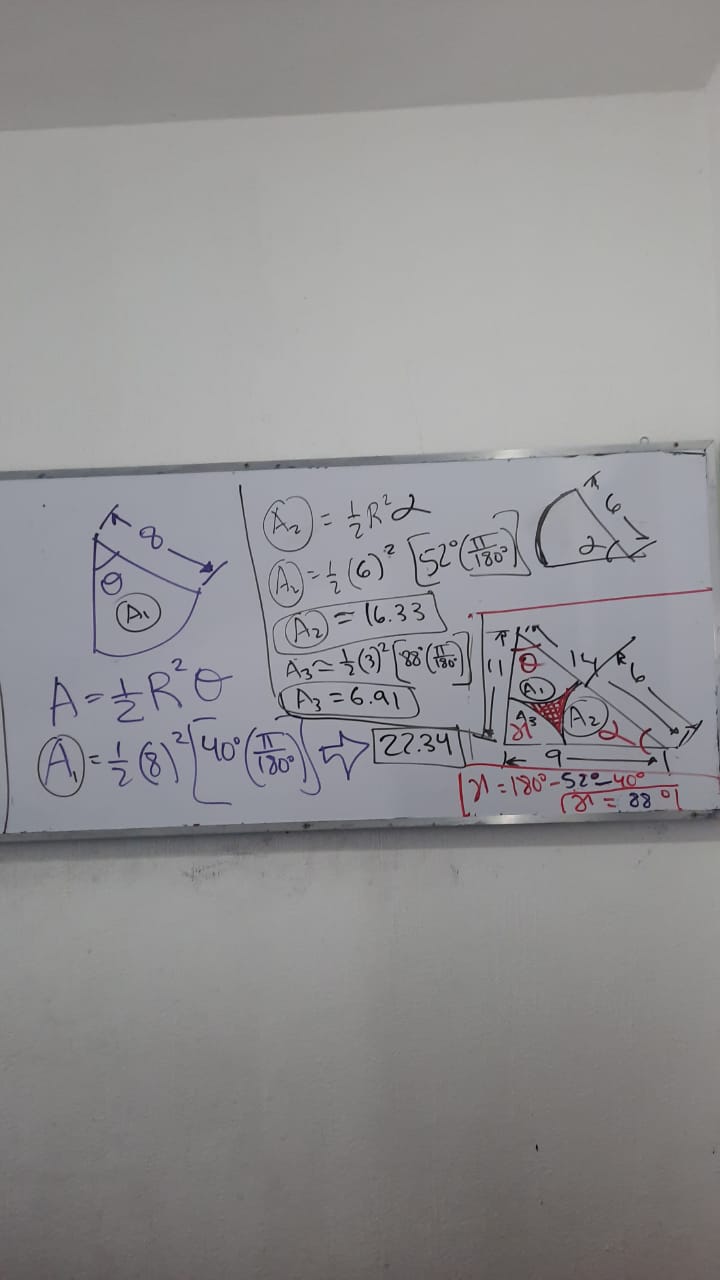 8
θ
A₁
A = ½ R² θ
A₁ = ½ (8)² [40° (π/180°)] ⇨ 22.34
A₂ = ½ R² α
A₂ = ½ (6)² [52° (π/180°)]
A₂ = 16.33
A₃ = ½ (3)² [88° (π/180°)]
A₃ = 6.91
6
α
11
θ
14
6
A₁
A₃
A₂
α
9
γ = 180° - 52° - 40°
γ = 88°